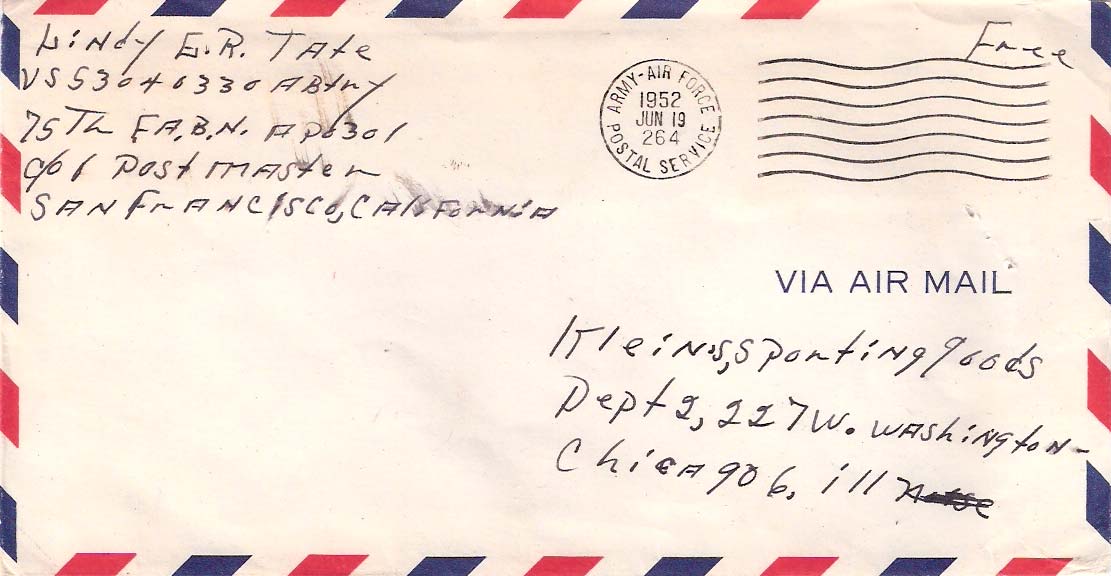 Lindy E.R. Tate
US53040330 ABtry
75Th F.A.B.N. APO301
c/o1 Postmaster
SAN FrANCISCO, CAliforniA
Free
ARMY-AIR FORCE
1952
JUN 19
264
POSTAL SERVICE
VIA AIR MAIL
Klein's, Sporting goods
Dept 2, 227 W. WAShington-
ChicAgo 6, ill